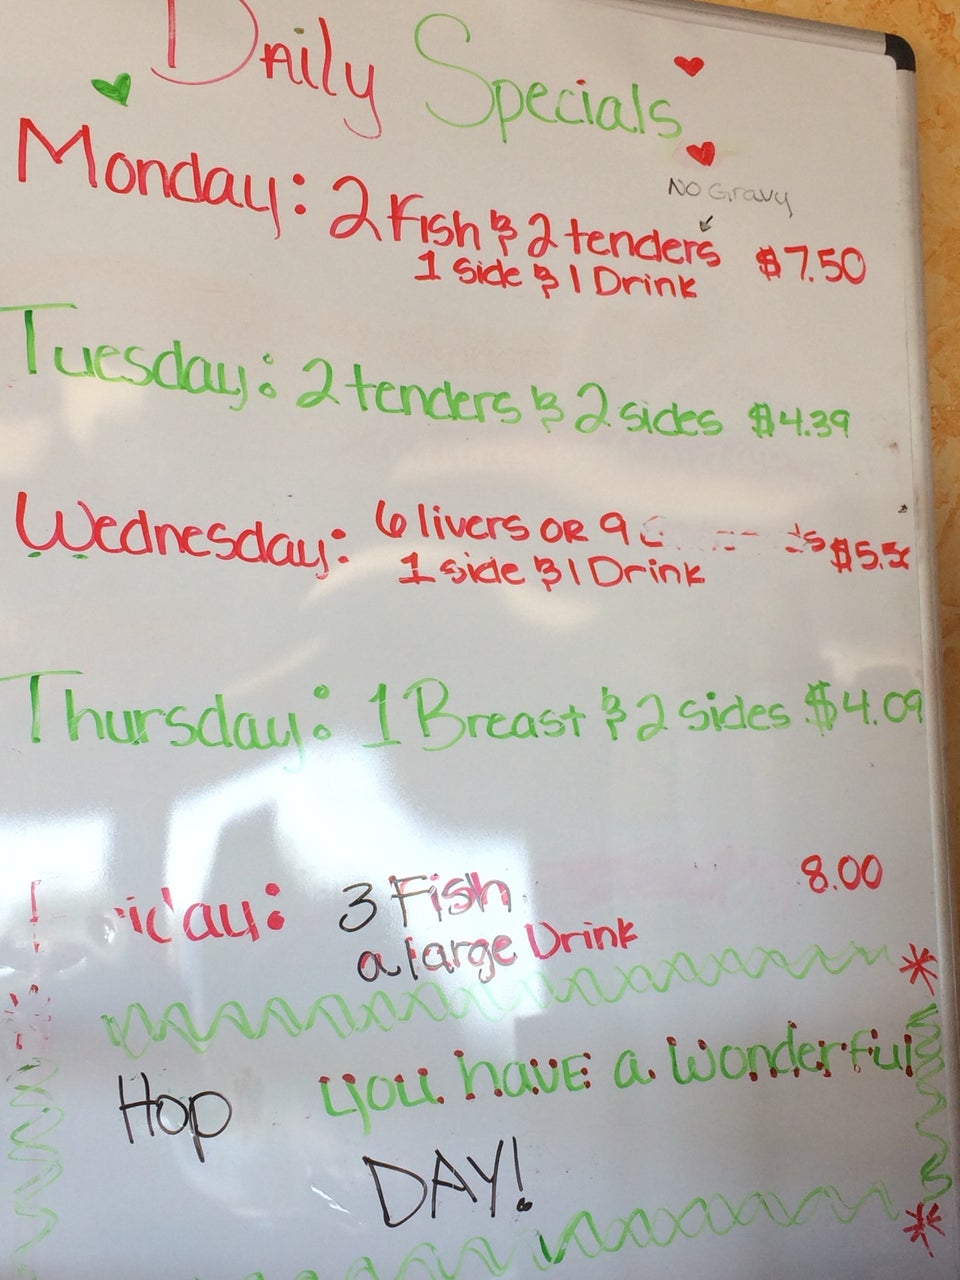 Daily Specials
Monday: 2 Fish & 2 tenders $7.50
NO Gravy
1 side & 1 Drink
Tuesday: 2 tenders & 2 sides $4.39
Wednesday: 6 livers OR 9
1 side & 1 Drink
Thursday: 1 Breast & 2 sides $4.09
3 Fish 8.00
a large Drink
Hop you have a wonderful
DAY!